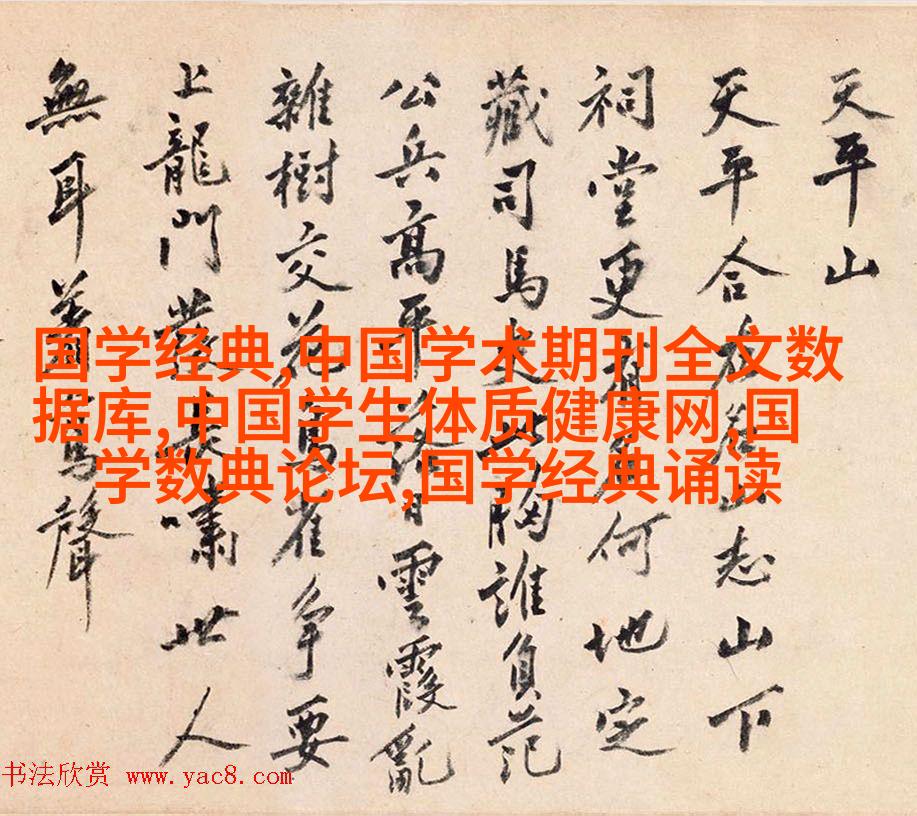 天平山
天平合在名山志山下
祠堂更有何地定
藏司馬史此胸誰負范
公兵高平落日雲霞亂
雜樹交花鳥雀爭要
上龍門發長嘯世人
無耳着鸞聲
国学经典,中国学术期刊全文数
据库,中国学生体质健康网,国
学数典论坛,国学经典诵读
书法欣赏 www.yac8.com